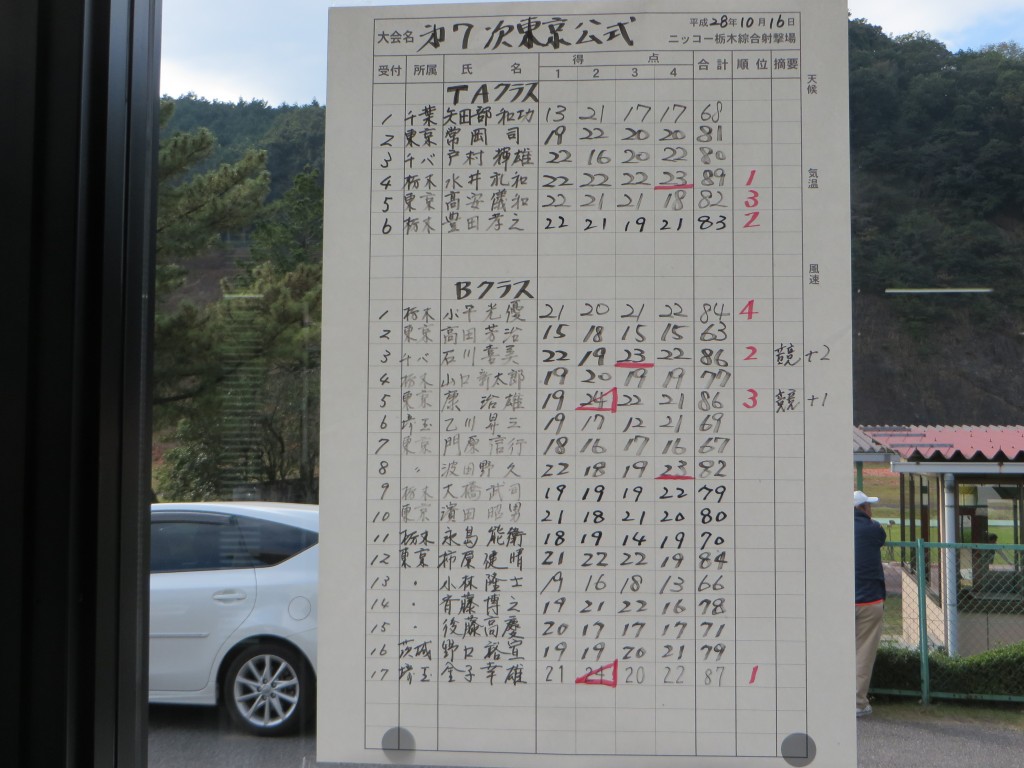 平成28年10月16日
大会名 第7次東京公式 ニッコー栃木綜合射撃場
受付 所属 氏名 得点 合計 順位 摘要
1 2 3 4
天候
気温
風速
TAクラス
1 千葉 矢田部 和功 13 21 17 17 68
2 東京 常岡 司 19 22 20 20 81
3 千ベ 戸村 輝雄 22 16 20 22 80
4 栃木 水井 礼和 22 22 22 23 89 1
5 東京 高安 儀和 22 21 21 18 82 3
6 栃木 豊田 孝之 22 21 19 21 83 2
Bクラス
1 栃木 小平 光優 21 20 21 22 84 4
2 東京 高田 芳治 15 18 15 15 63
3 千ベ 石川 喜美 22 19 23 22 86 2 競+2
4 栃木 山口 新太郎 19 20 19 19 77
5 東京 原 治雄 19 24 22 21 86 3 競+1
6 埼玉 乙川 昇三 19 17 12 21 69
7 東京 門原 信行 18 16 17 16 67
8 〃 波田野 久 22 18 19 23 82
9 栃木 大橋 武司 19 19 19 22 79
10 東京 濱田 昭男 21 18 21 20 80
11 栃木 永島 能衛 18 19 14 19 70
12 東京 柿原 健晴 21 22 22 19 84
13 〃 小林 隆士 19 16 18 13 66
14 〃 斉藤 博之 19 21 22 16 78
15 〃 後藤 高慶 20 17 17 17 71
16 茨城 野口 裕宣 19 19 20 21 79
17 埼玉 金子 幸雄 21 24 20 22 87 1